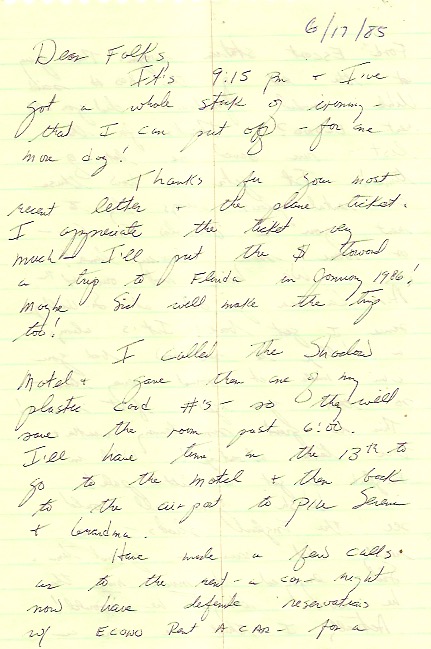 6/17/85
Dear Folks,
It's 9:15 pm + I've
got a whole stack of ironing -
that I can put off - for one
more day!
Thanks for your most
recent letter + the plane ticket.
I appreciate the ticket very
much - I'll put the $ toward
a trip to Florida in January 1986!
Maybe Sid will make the trip
too!
I called the Shadow
Motel + gave them one of my
plastic card #'s - so they will
save the room past 6:00.
I'll have time on the 13th to
go to the motel + then back
to the airport to p/u
+ Grandma.
Have made a few calls
as to the rent-a-car - right
now have definite reservations
w/ ECONO Rent A CAR - for a